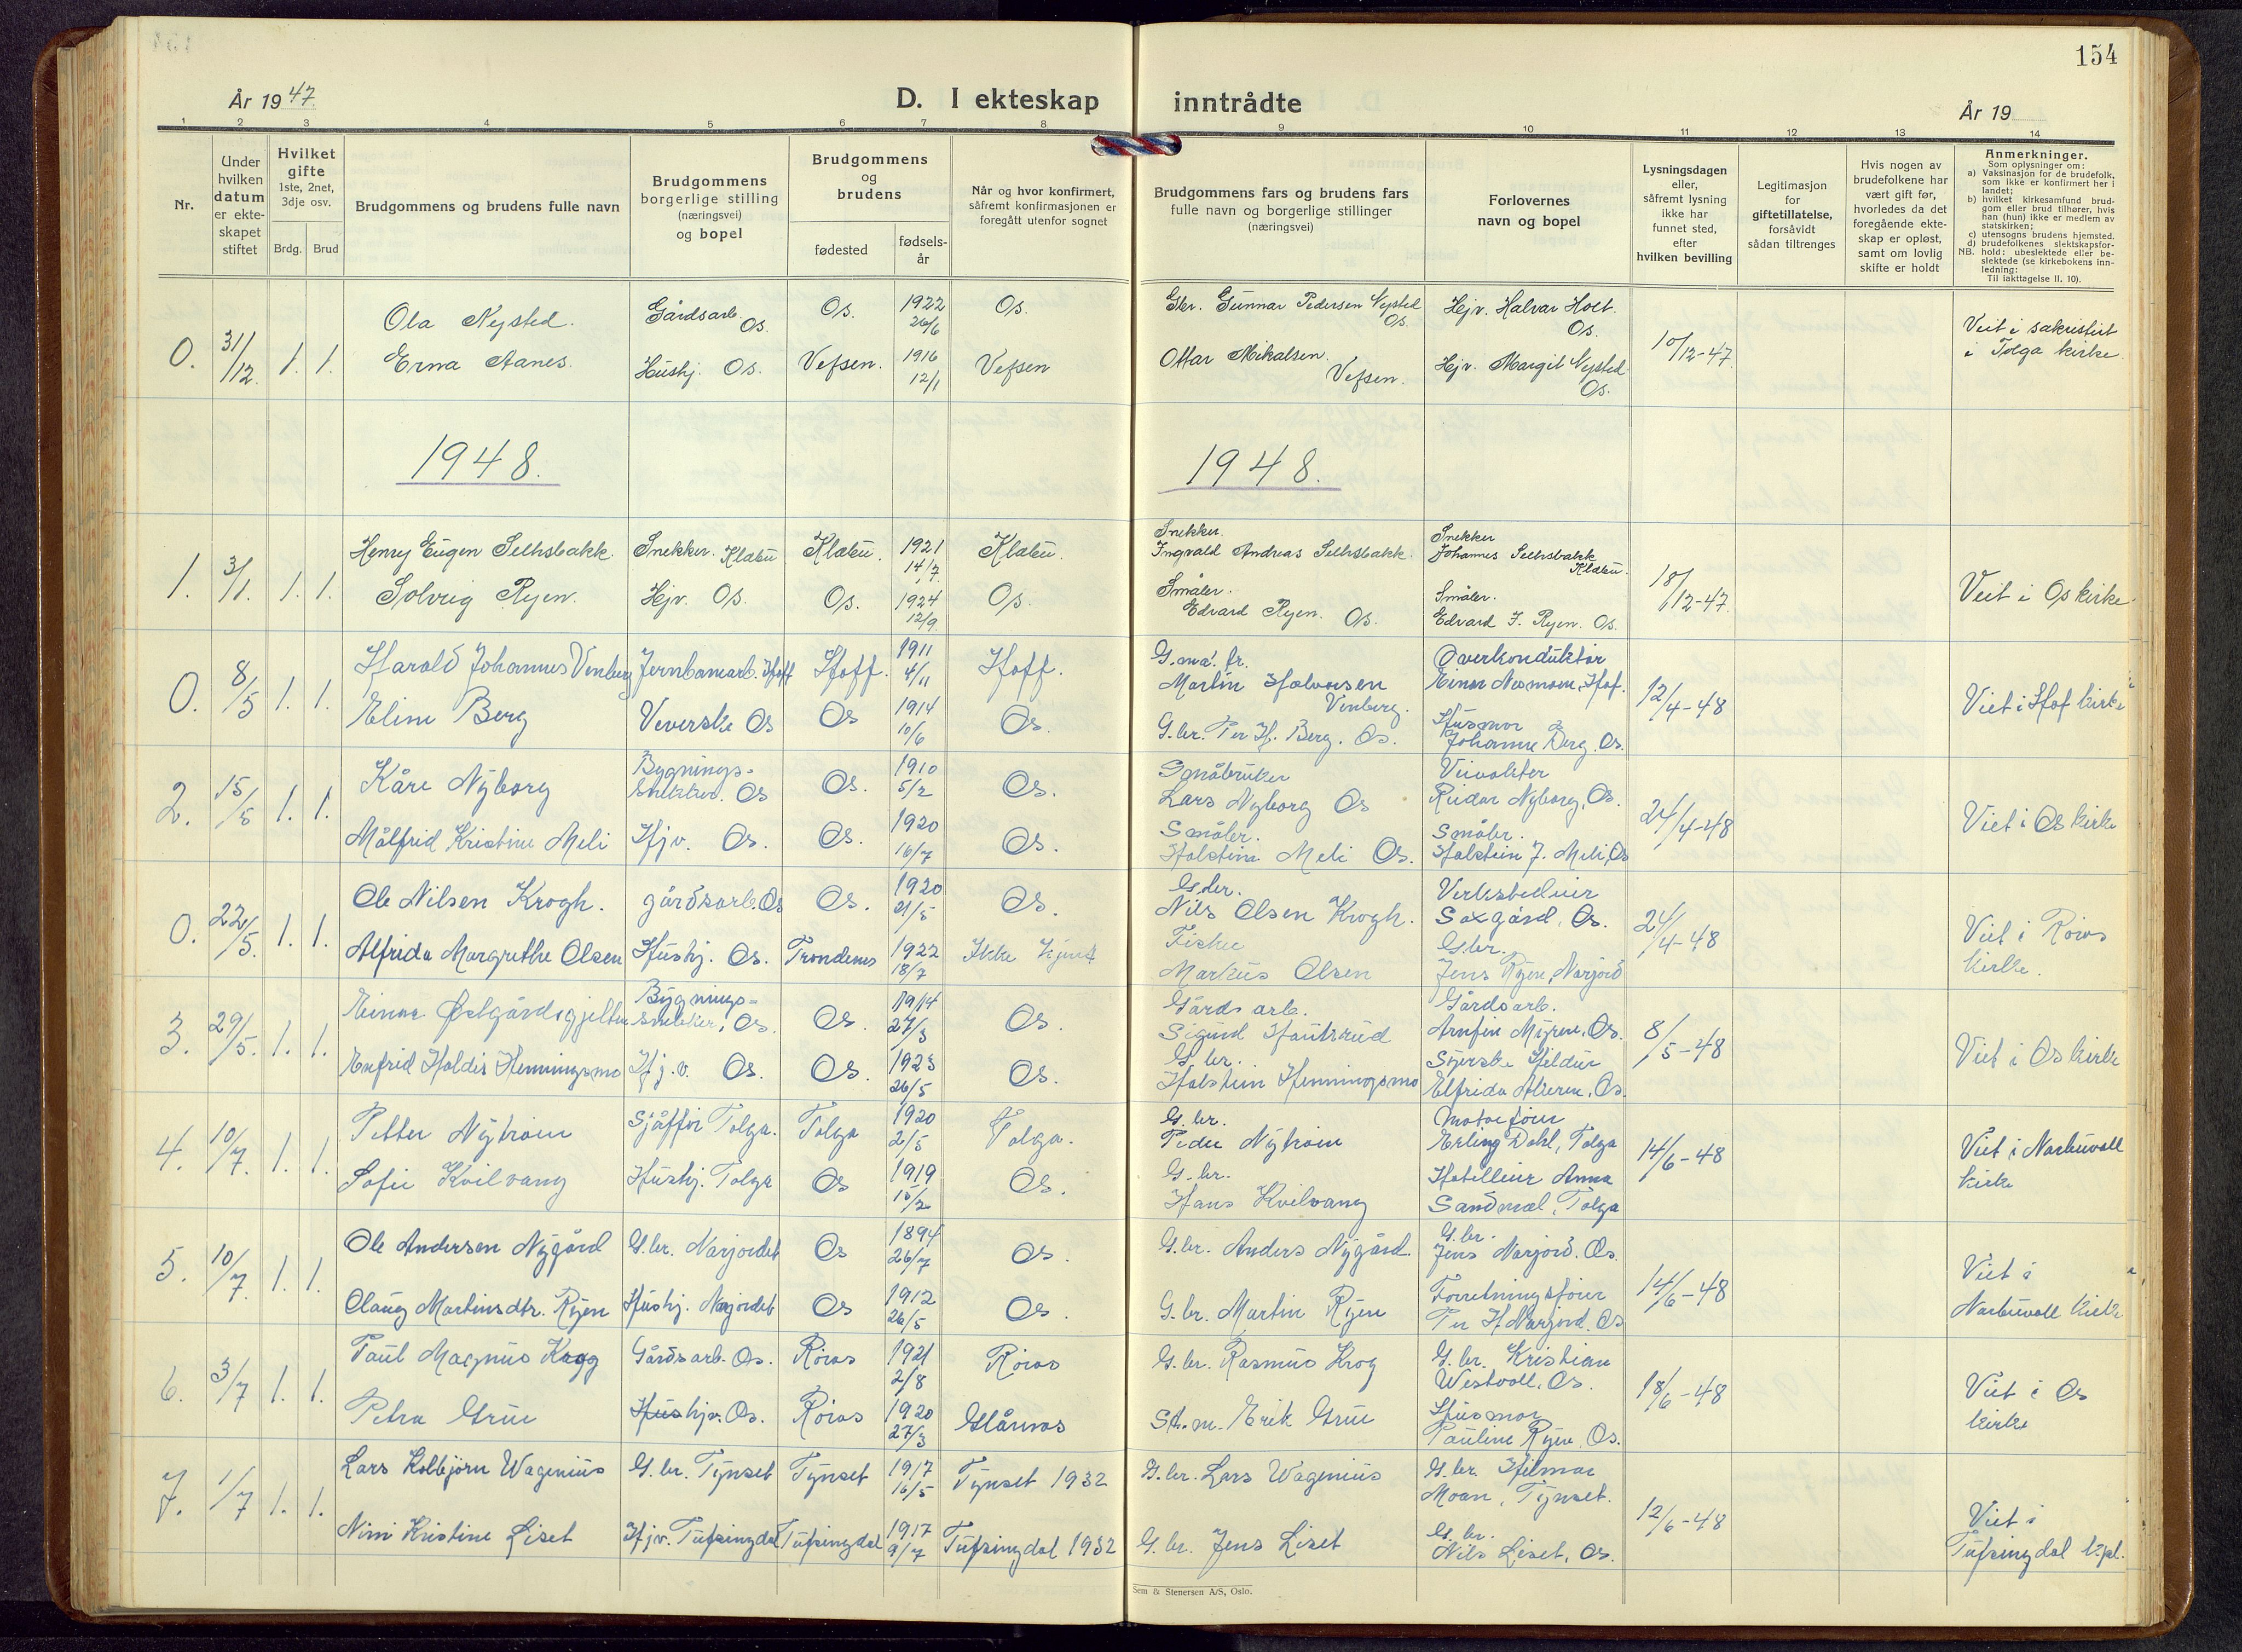 154
År 1947.
D. I ekteskap inntrådte
År 19
1 2 3 4 5 6 7 8 9 10 11 12 13 14
Nr.
Under hvilken datum er ekteskapet stiftet
Hvilket gifte 1ste, 2net, 3dje osv.
Brdg. Brud
Brudgommens og brudens fulle navn
Brudgommens borgerlige stilling (næringsvei) og bopel
Brudgommens og brudens
fødested
fødselsår
Når og hvor konfirmert, såfremt konfirmasjonen er foregått utenfor sognet
Brudgommens fars og brudens fars fulle navn og borgerlige stillinger (næringsvei)
Forlovernes navn og bopel
Lysningsdagen eller, såfremt lysning ikke har funnet sted, efter hvilken bevilling
Legitimasjon for giftetillatelse, forsåvidt sådan tiltrenges
Hvis nogen av brudefolkene har vært gift før, hvorledes da det foregående ekteskap er opløst, samt om lovlig skifte er holdt
Anmerkninger.
Som oplysninger om:
a) Vaksinasjon for de brudefolk, som ikke er konfirmert her i landet;
b) hvilket kirkesamfund brudgom eller brud tilhører, hvis han (hun) ikke er medlem av statskirken;
c) utensogns brudens hjemsted.
d) brudefolkenes slektskapsforhold: ubeslektede eller beslektede (se kirkebokens innledning:
NB. Til iakttagelse II. 10).
0. 31/12. 1. 1. Ola Nysted. Gårdsarb. Os. Os. 1922 26/6 Os. Gbr. Gunnar Pedersen Nysted Os. Hjv. Halvar Holt. Os. 10/12-47. Viet i sakristiet i Tolga kirke.
Erna Aanes. Hushj. Os. Vefsen. 1916 12/1 Vefsen Ottar Mikalsen. Vefsen. Hjv. Margit Nysted. Os.
1948. 1948.
1. 3/1. 1. 1. Henry Eugen Selhsbakk. Snekker. Klæbu Klæbu. 1921 14/7. Klæbu. Snekker. Ingvald Andreas Selhsbakk. Snekker Johannes Selhsbakk Klæbu. 18/12-47. Viet i Os kirke.
Solveig Ryen. Hjv. Os. Os. 1924 12/9. Os. Småbr. Edvard Ryen. Os. Småbr. Edvard J. Ryen. Os.
0. 8/5 1. 1. Harald Johannes Vinberg Jernbanearb. Hoff Hoff. 1911 4/11 Hoff. G.ma. fr. Martin Halvorsen Vinberg. Overkonduktør Einar Nesmoen, Hof. 12/4-48 Viet i Hof kirke
Eline Berg Veverske Os Os 1914 10/6 Os. G.br. Per H. Berg. Os. Husmor Johanne Berg. Os.
2. 15/5 1. 1. Kåre Nyborg Bygningssnekker. Os Os. 1910 5/2 Os. Småbruker Lars Nyborg Os Reidar Nyborg, Os. 24/4-48 Viet i Os kirke
Målfrid Kristine Meli Hjv. Os. Os. 1920 16/7 Os. Småbr. Holstein Meli Os. Småbr. Holstein J. Meli, Os
0. 22/5. 1. 1. Ole Nilsen Krogh. gårdsarb. Os Os. 1920 21/5 Os. G.br. Nils Olsen Krogh. Saxgård, Os. 24/4-48 Viet i Røros kirke.
Alfrida Margrethe Olsen Hushj. Os. Trondenes 1922 18/7 Ikke kjent Fisker Markus Olsen G.br. Jens Ryen, Narjord
3. 29/5. 1. 1. Einar Østgårdsgjelten Bygningssnekker, Os. Os. 1914 27/3 Os. Gårdsarb. Sigurd Hautrud Gårdsarb. Arnfin Myren, Os. 8/5-48 Viet i Os kirke
Enfrid Haldis Henningsmo Hj.v. Os. Os. 1923 26/5 Os. G.br. Holstein Henningsmo Syerske Hildur Elfrida Alieren, Os.
4. 10/7. 1. 1. Petter Nytrøen Sjåffør Tolga. Tolga 1920 2/5 Tolga. G.br. Peder Nytrøen Erling Dahl, Tolga 14/6-48 Viet i Narbuvoll kirke
Sofie Kvilvang Hushj. Tolga Os 1919 15/2 Os. G.br. Hans Kvilvang Hotelleier Anna Sandmæl, Tolga
5. 10/7. 1. 1. Ole Andersen Nygård G.br. Narjordet Os 1894 26/7 Os. G.br. Anders Nygård. G.br. Jens Narjord. Os. 14/6-48 Viet i Narbuvoll kirke
Olaug Martinsdtr. Ryen Hushj. Narjordet Os 1912 26/5 Os. G.br. Martin Ryen Forretningsfører Per H Narjord. Os
6. 3/7 1. 1. Paul Magnus Krogg Gårdsarb. Os. Røros 1921 2/8 Røros G.br. Rasmus Krog G.br. Kristian Westvoll, Os. 18/6-48 Viet i Os kirke
Petra Grue Hushjv. Os. Røros 1920 27/3 Glåmos St.m. Erik Grue Husmor Pauline Ryen. Os.
7. 1/7 1. 1. Lars Kolbjørn Wagenius G.br. Tynset Tynset 1917 16/5 Tynset 1932 G.br. Lars Wagenius G.br. Hilmar Moan, Tynset. 12/6-48 Viet i Tufsingdal kpl.
Nini Kristine Liset Hjv. Tufsingdal Tufsingdal 1917 9/7 Tufsingdal 1932 G.br. Jens Liset G.br. Nils Liset, Os.
Sem & Stenersen A/S, Oslo.